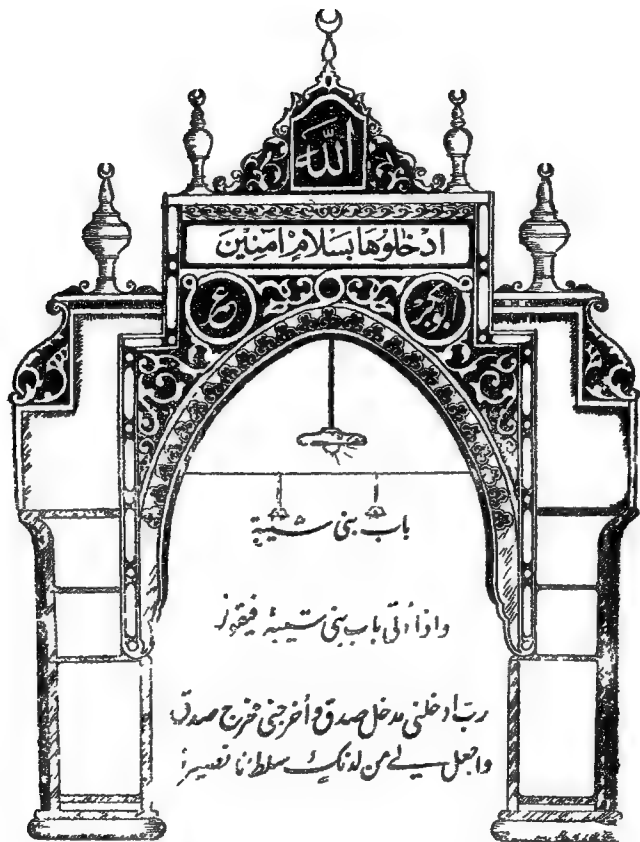 الله
ادخلوها بسلام آمنين
ابوبكر
عمر
باب بنى شيبة
واذا أتى باب بنى شيبة فيقول
رب ادخلنى مدخل صدق وأخرجنى مخرج صدق
واجعل لي من لدنك سلطانا نصيرا